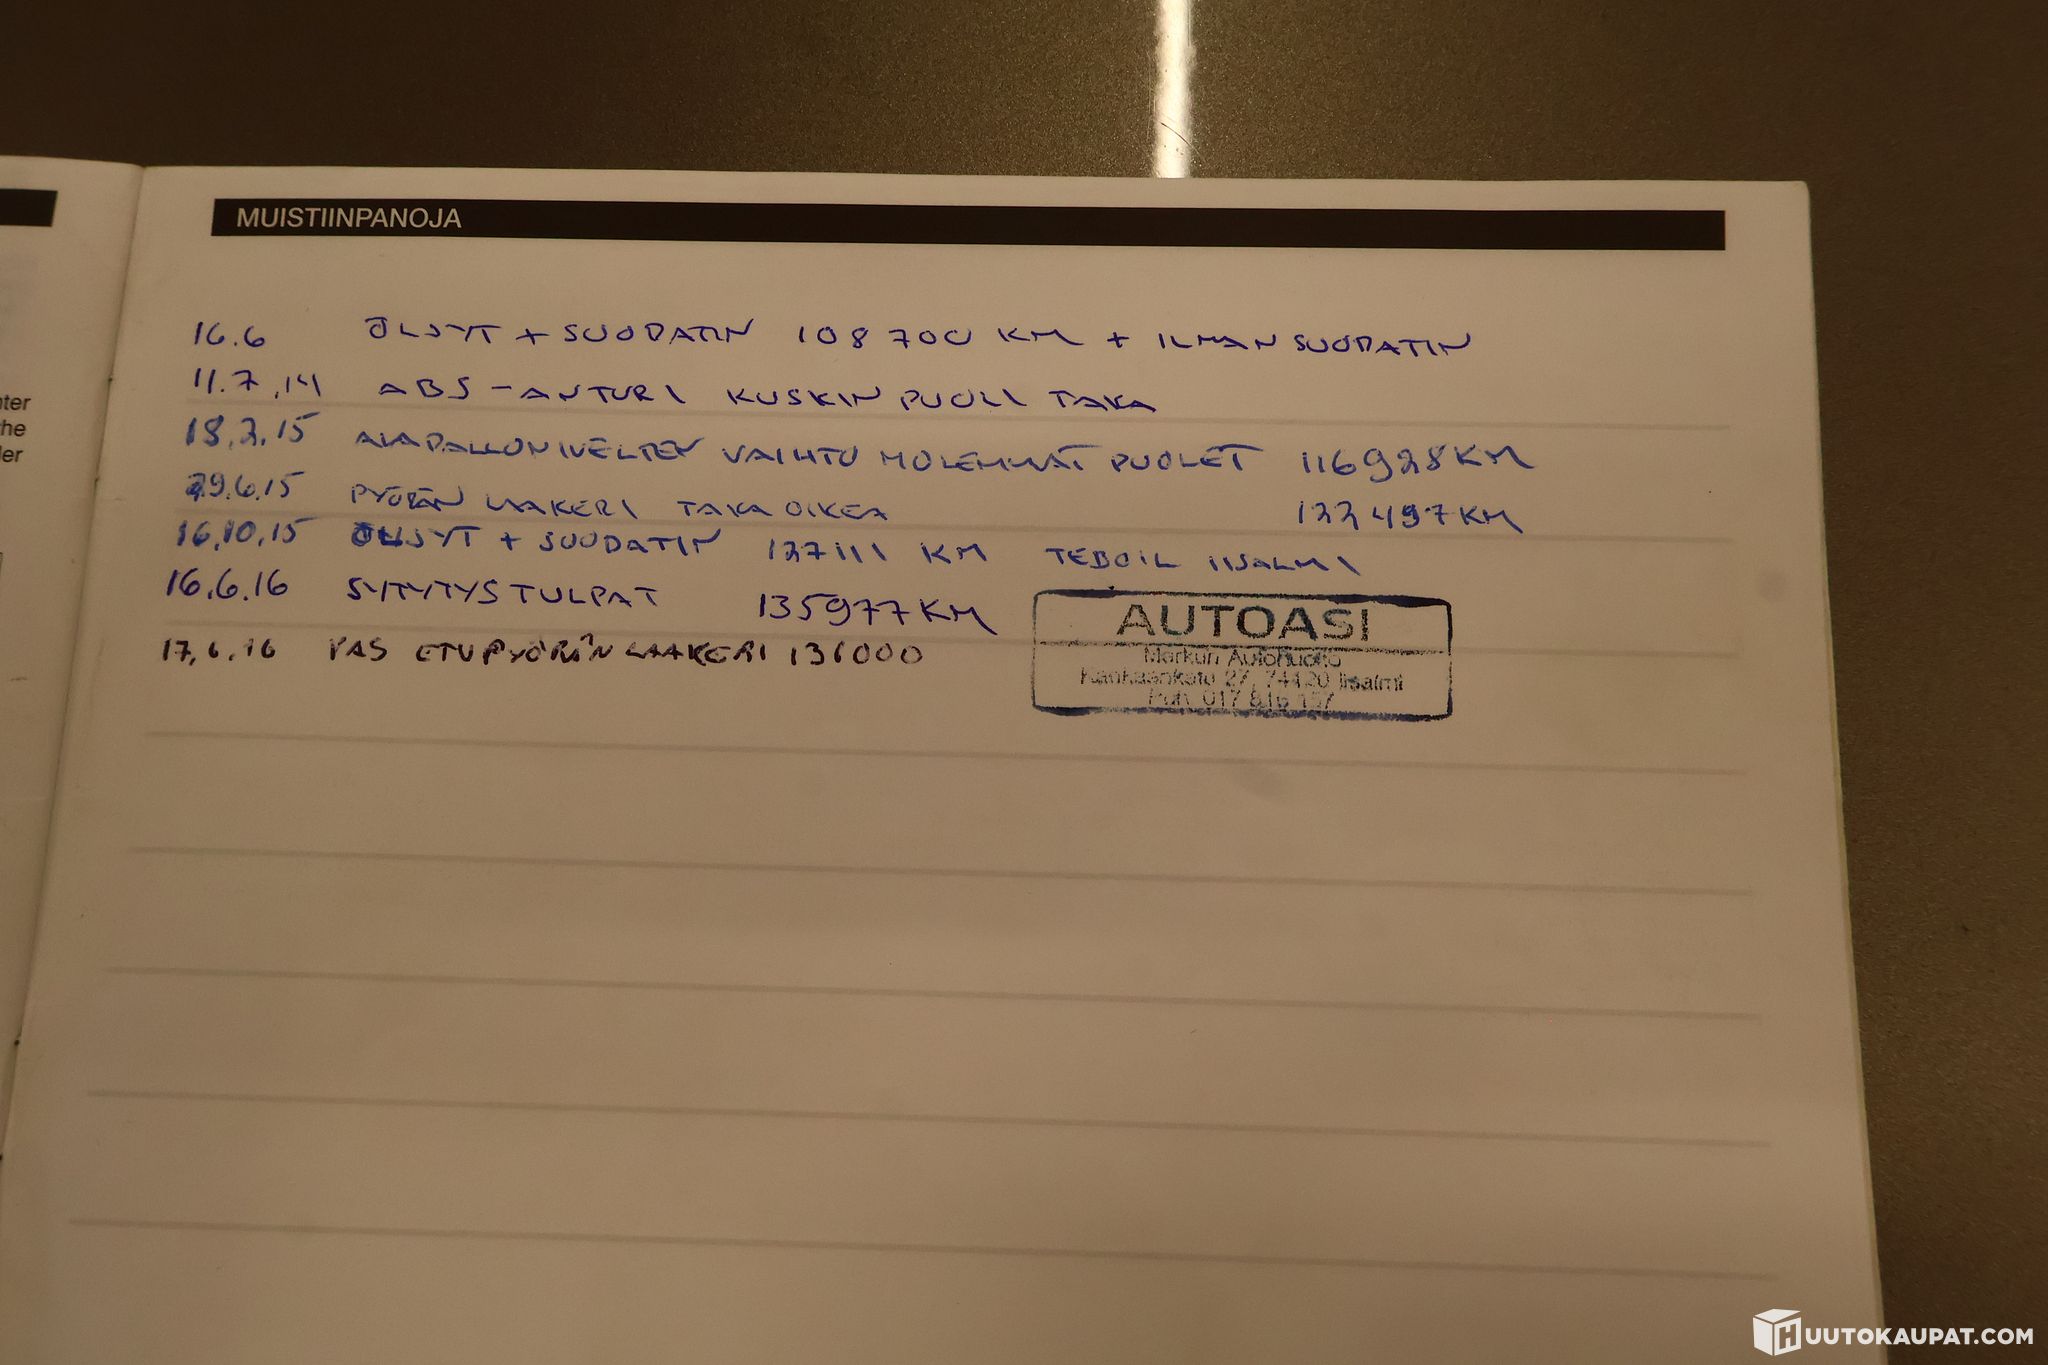 nter
the
ler
MUISTIINPANOJA
16.6 ÖLJYT + SUODATIN 108 700 KM + ILMANSUODATIN
11.7.14 ABS-ANTURI KUSKIN PUOLI TAKA
18.2.15 ALAPALLONIVELTEN VAIHTO MOLEMMAT PUOLET 116928 KM
29.6.15 PYÖRÄN LAAKERI TAKA OIKEA 122497 KM
16.10.15 ÖLJYT + SUODATIN 127111 KM TEBOIL IISALMI
16.6.16 SYTYTYSTULPAT 135977 KM
17.6.16 VAS ETUPYÖRÄN LAAKERI 136000
AUTOASI
Markun Autohuolto
Kankaankatu 27, 74120 Iisalmi
Puh. 017 816 157
HUUTOKAUPAT.COM